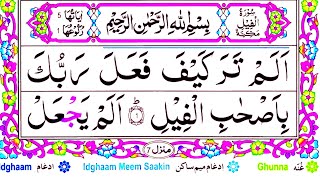 سُوْرَةُ الْفِيْلِ مَكِّيَّةٌ
بِسْمِ اللّٰهِ الرَّحْمٰنِ الرَّحِيْمِ
اٰيَاتُهَا ٥ رُكُوْعُهَا ١
اَلَمْ تَرَ كَيْفَ فَعَلَ رَبُّكَ
بِاَصْحٰبِ الْفِيْلِ ۝١ اَلَمْ يَجْعَلْ
منزل ٧
Idghaam ادغام Idghaam Meem Saakin ادغام ميم ساكن Ghunna غُنّه